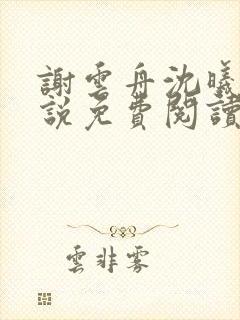 謝雲舟沈曦
說免費閱讀
雲非雾